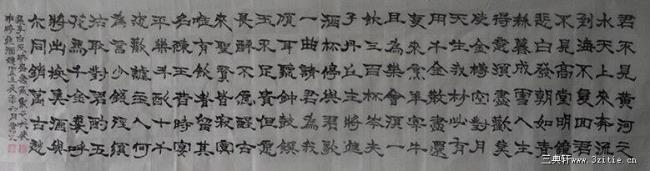 君不見黃河之
水天上來奔流
到海不復回君
不見高堂明鏡
悲白髮朝如青
絲暮成雪人生
得意須盡歡莫
使金樽空對月
天生我材必有
用千金散盡還
復來烹羊宰牛
且為樂會須一
飲三百杯岑夫
子丹丘生將進
酒杯停與君歌
一曲請君為我
傾耳聽鐘鼓饌
玉不足貴但願
長醉不願醒古
來聖賢皆寂寞
惟有飲者留其
名陳王昔時宴
平樂斗酒十千
恣歡謔主人何
為言少錢徑須
沽取對君酌五
花馬千金裘呼兒
將出換美酒與
爾同銷萬古愁
三典轩www.3zitie.cn